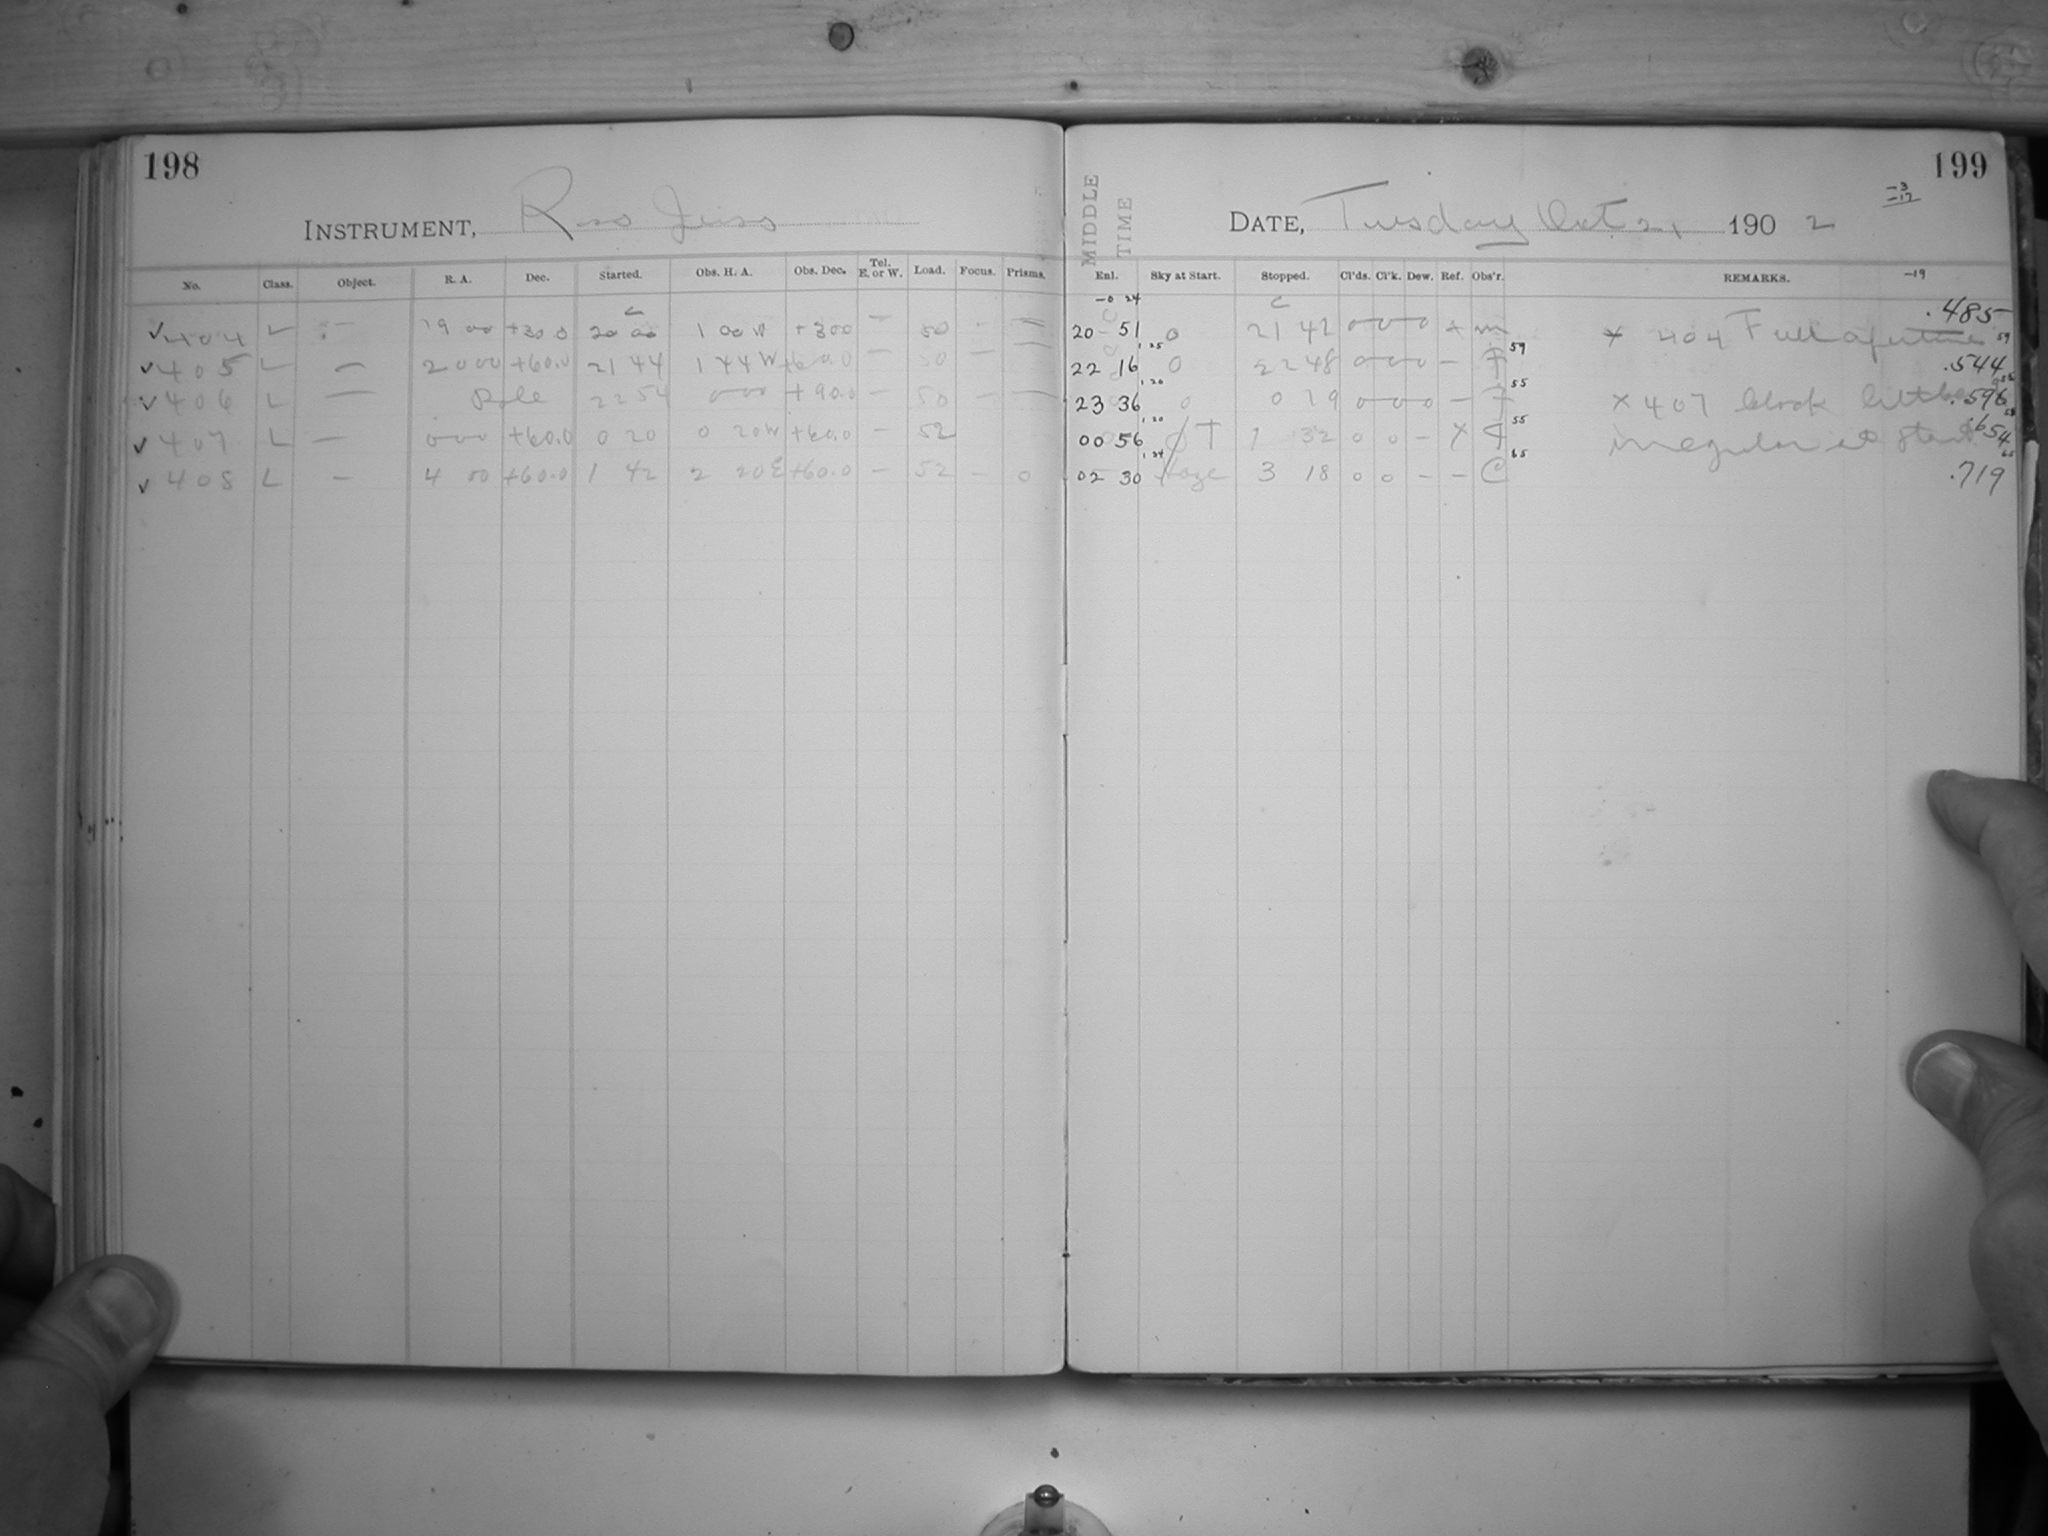 198
INSTRUMENT,
No. Class. Object. R. A. Dec. Started. Obs. H. A. Obs. Dec. Tel. E. or W. Load. Focus. Prisms.
404 L — 19 00 +30 0 20 00 1 00 W +30 0 — 50 - —
405 L — 20 00 +60.0 21 44 1 44 W +60.0 — 50 — —
406 L — Pole 22 54 0 00 +90.0 — 50 — —
407 L — 0 00 +60.0 0 20 0 20 W +60.0 — 52
408 L — 4 00 +60.0 1 42 2 20 E +60.0 — 52 — 0
199
-3
-17
MIDDLE TIME
DATE, Tuesday Oct 21, 1902
Enl. Sky at Start. Stopped. Cl'ds. Cl'k. Dew. Ref. Obs'r. REMARKS. -19
-0 24
20 51 0 21 42 0 0 0 + m × 404 Full aperture .485
59
1.25
22 16 0 22 48 0 0 0 — F .544
59
1.20
23 36 0 0 19 0 0 0 — F × 407 clock little .596
55
1.20
00 56 T 1 32 0 0 — × F irregular at start .654
55
1.34
02 30 Haze 3 18 0 0 — — C .719
65